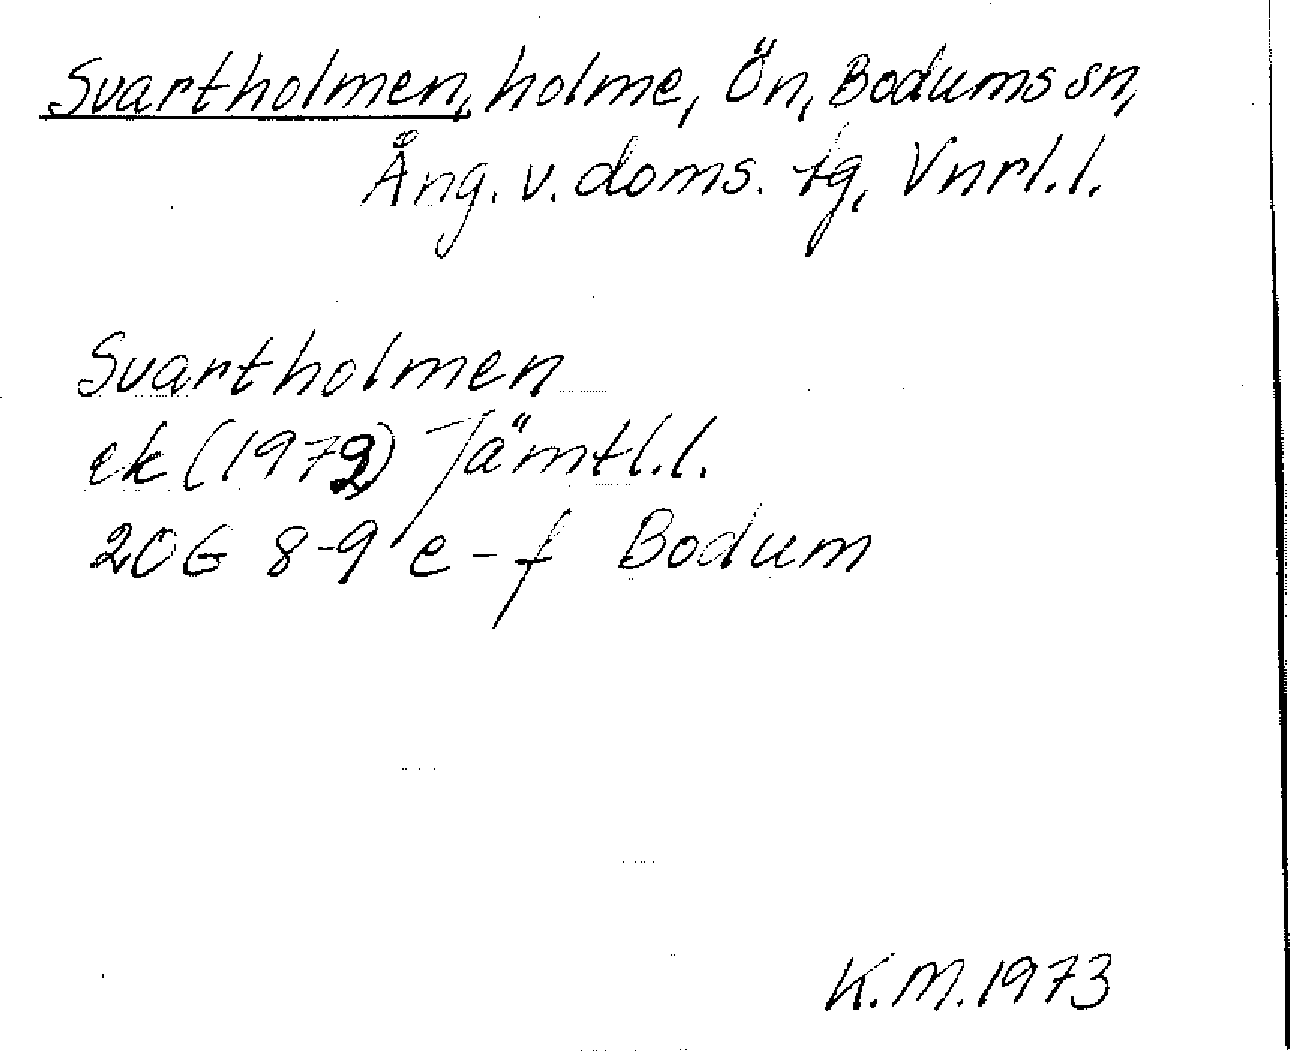 Svartholmen, holme, Ön, Bodums sn,
Ång. v. doms. tg, Vnrl.l.
Svartholmen
ek (1972) Jämtl.l.
20G 8-9 e-f Bodum
K.M. 1973